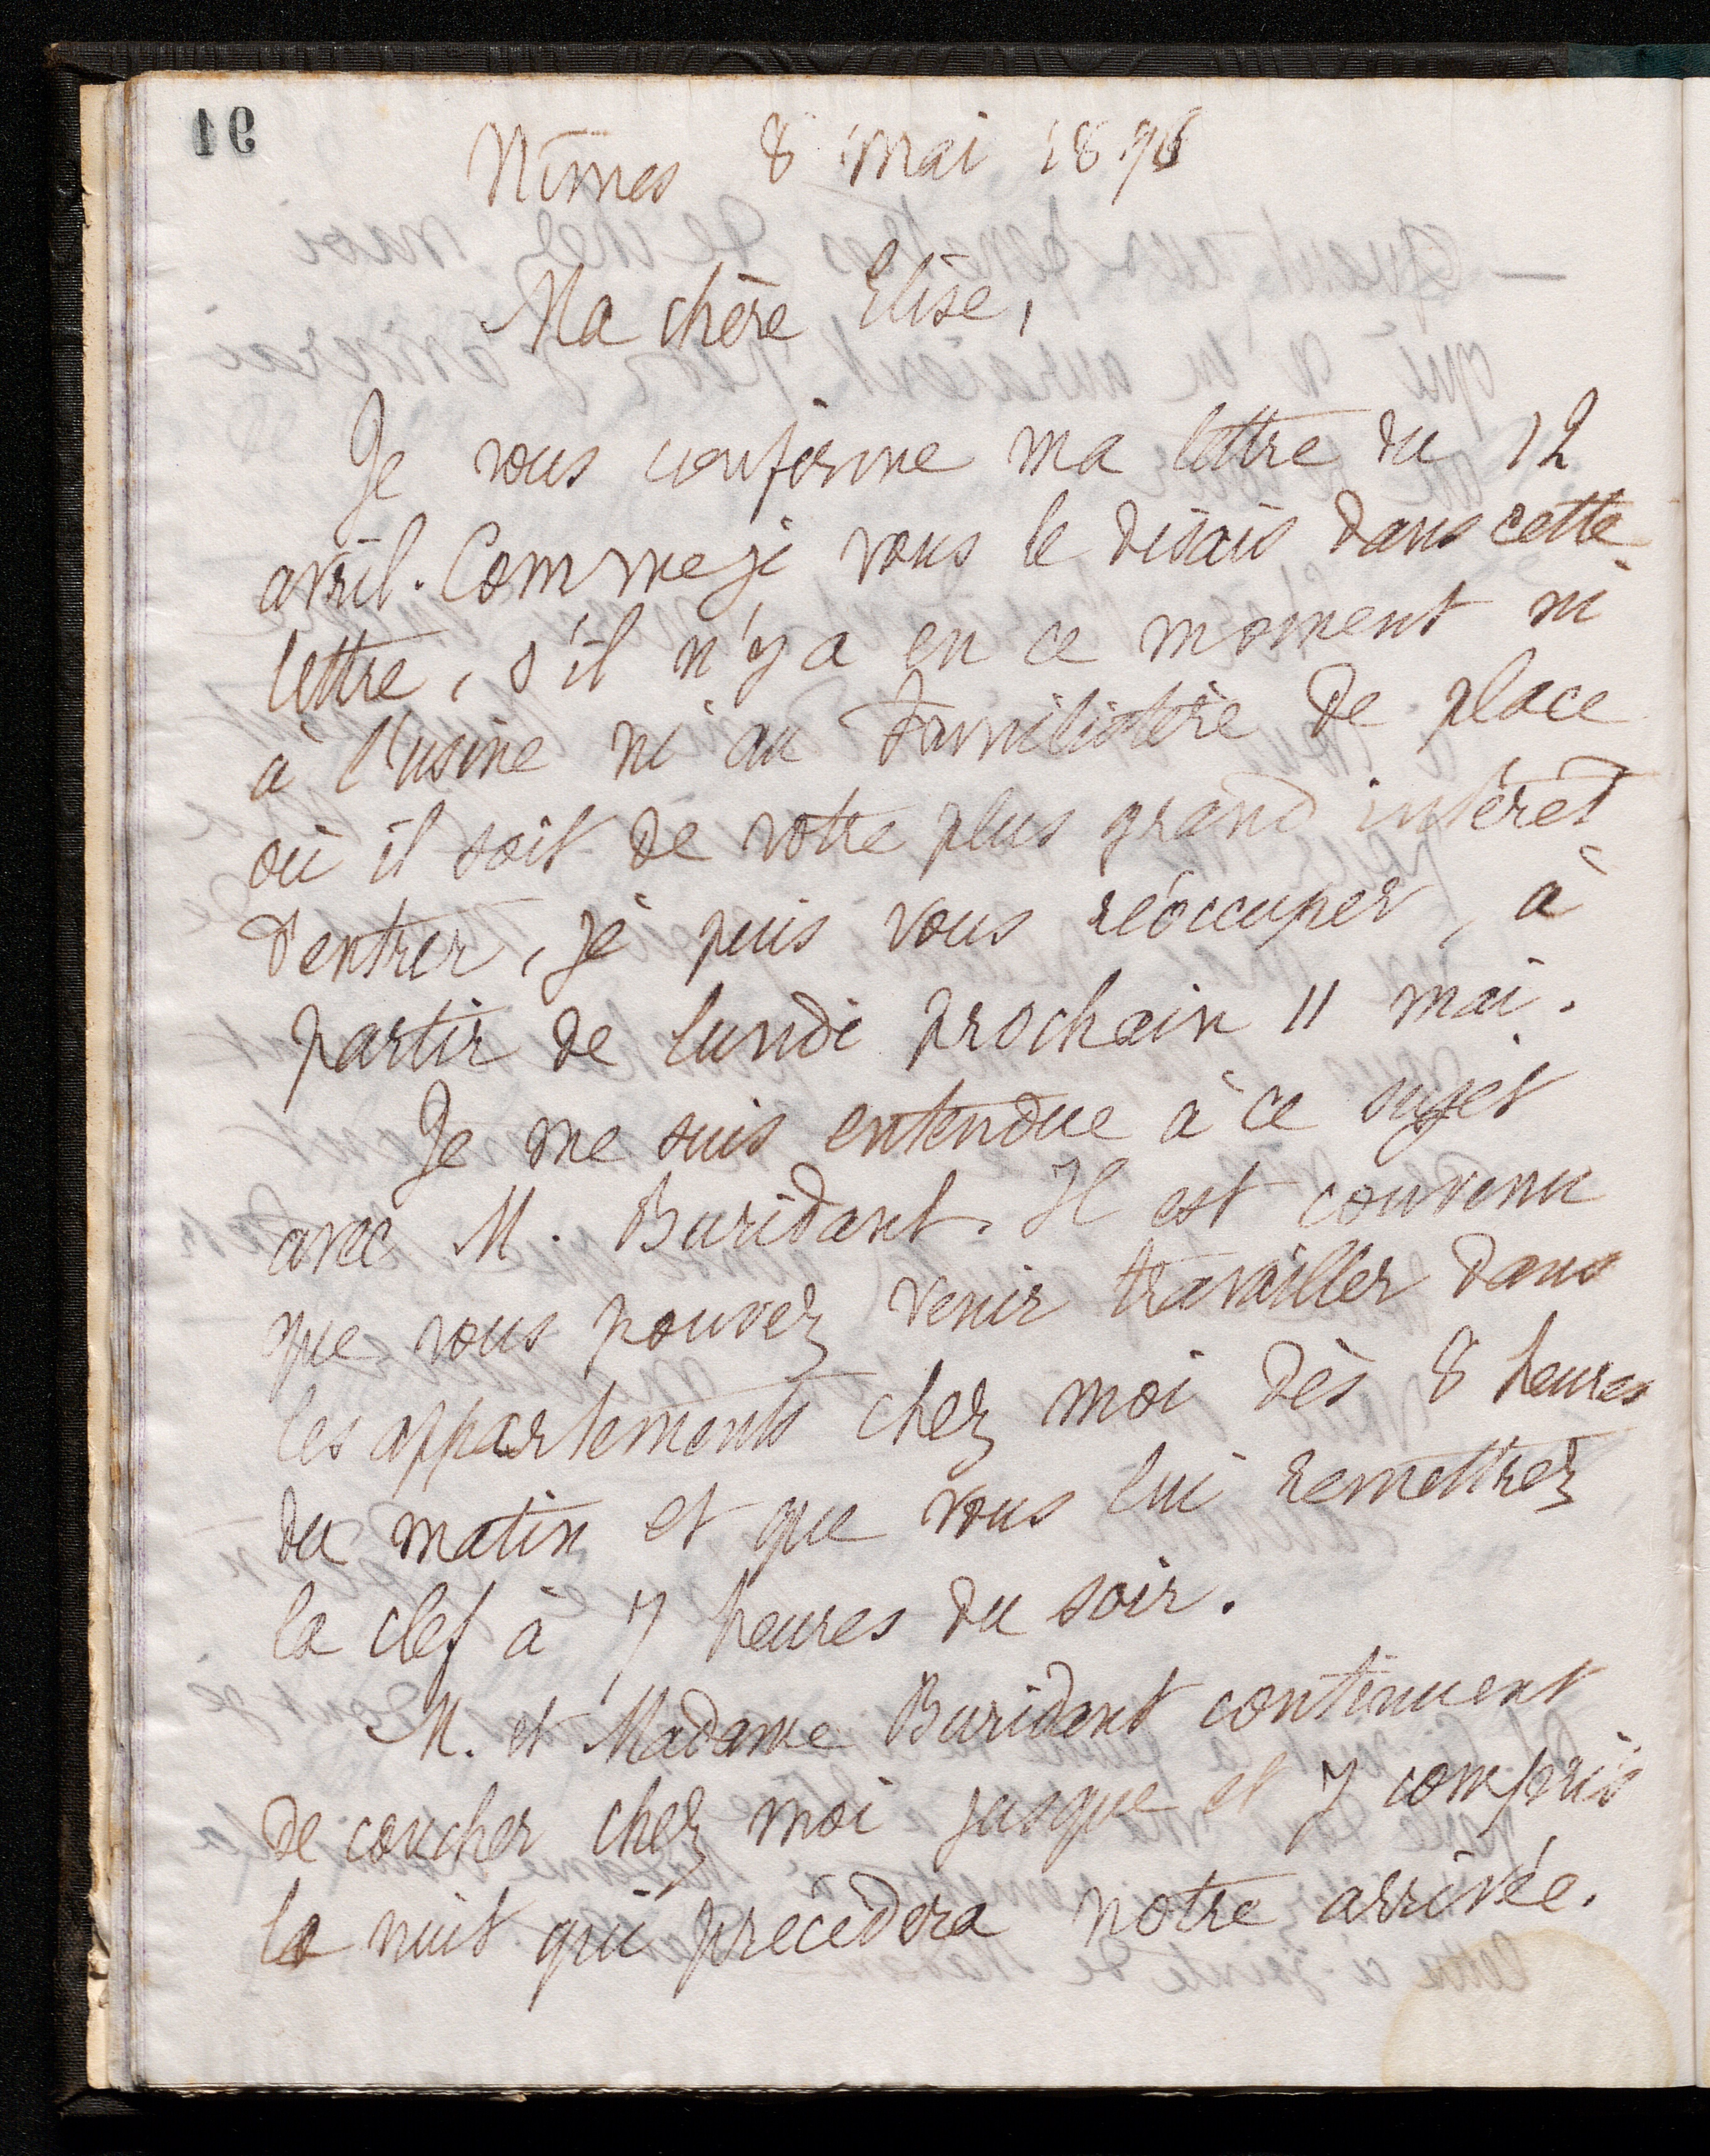 16
Nîmes 8 mai 1896
Ma chère Elise,
Je vous confirme ma lettre du 12
avril. Comme je vous le disais dans cette
lettre, s'il n'y a en ce moment ni
à l'usine ni au Familistère de place
où il soit de votre plus grand intérêt
d'entrer, je puis vous réoccuper, à
partir de lundi prochain 11 mai.
Je me suis entendue à ce sujet
avec M. Buridant. Il est convenu
que vous pouvez venir travailler dans
les appartements chez moi dès 8 heures
du matin et que vous lui remettrez
la clef à 7 heures du soir.
M. et Madame Buridant continuent
de coucher chez moi jusque et y compris
la nuit qui précèdera notre arrivée.